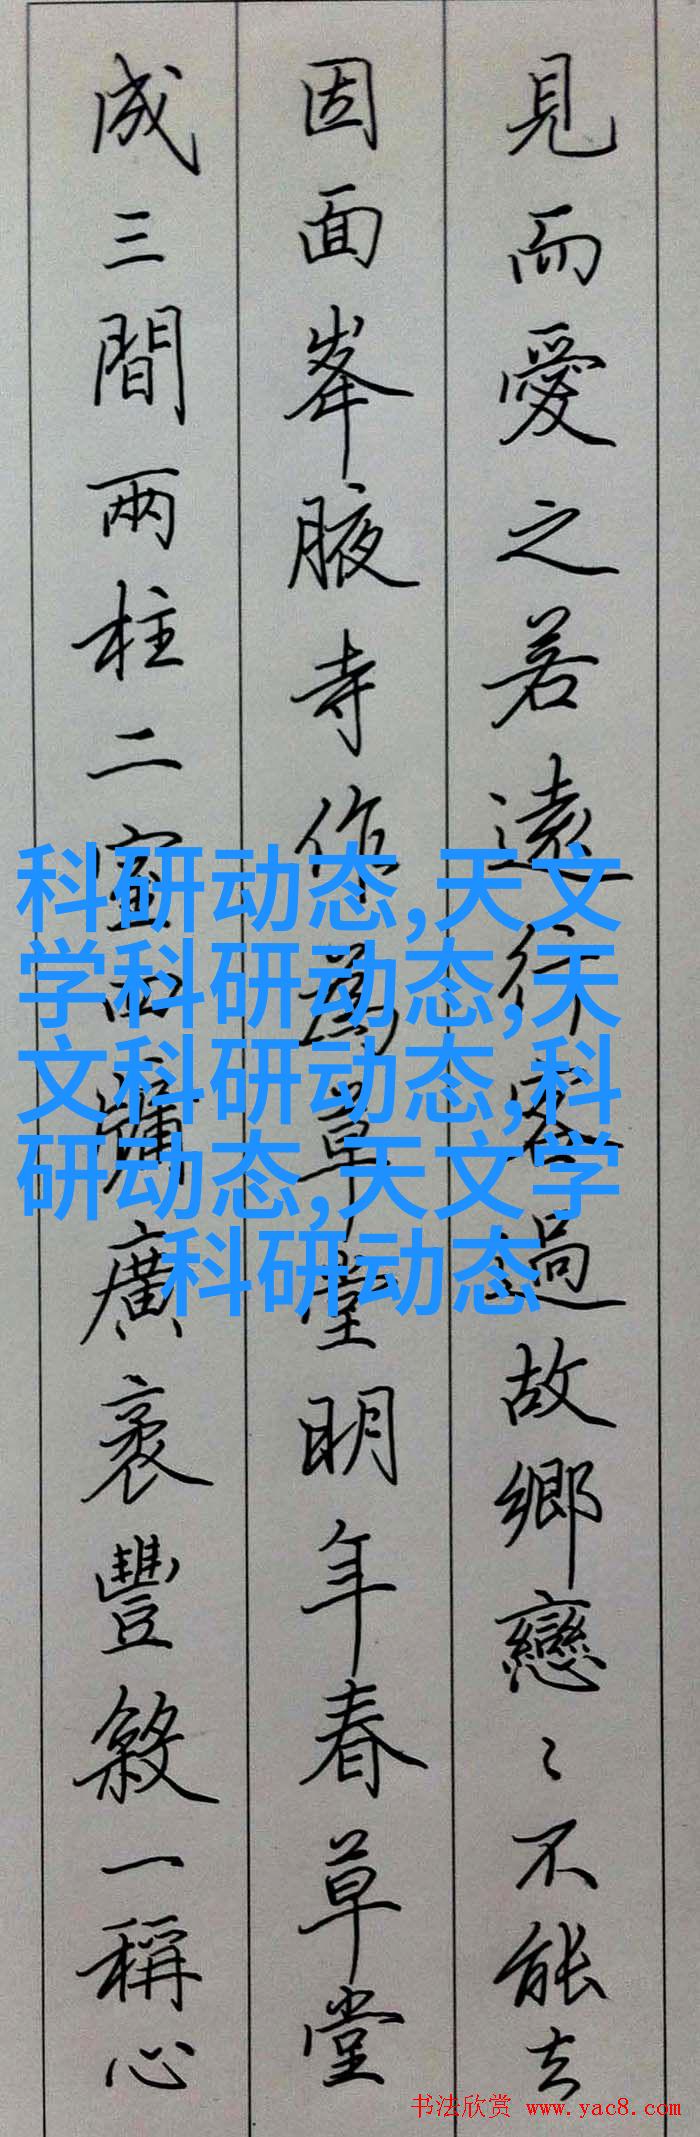 見而愛之若遠行客過故鄉戀〻不能去
因面峯腋寺作為草堂明年春草堂
成三間兩柱二室四牖廣袤豐殺一稱心
科研动态,天文
学科研动态,天
文科研动态,科
研动态,天文学
科研动态
书法欣赏 www.yac8.com